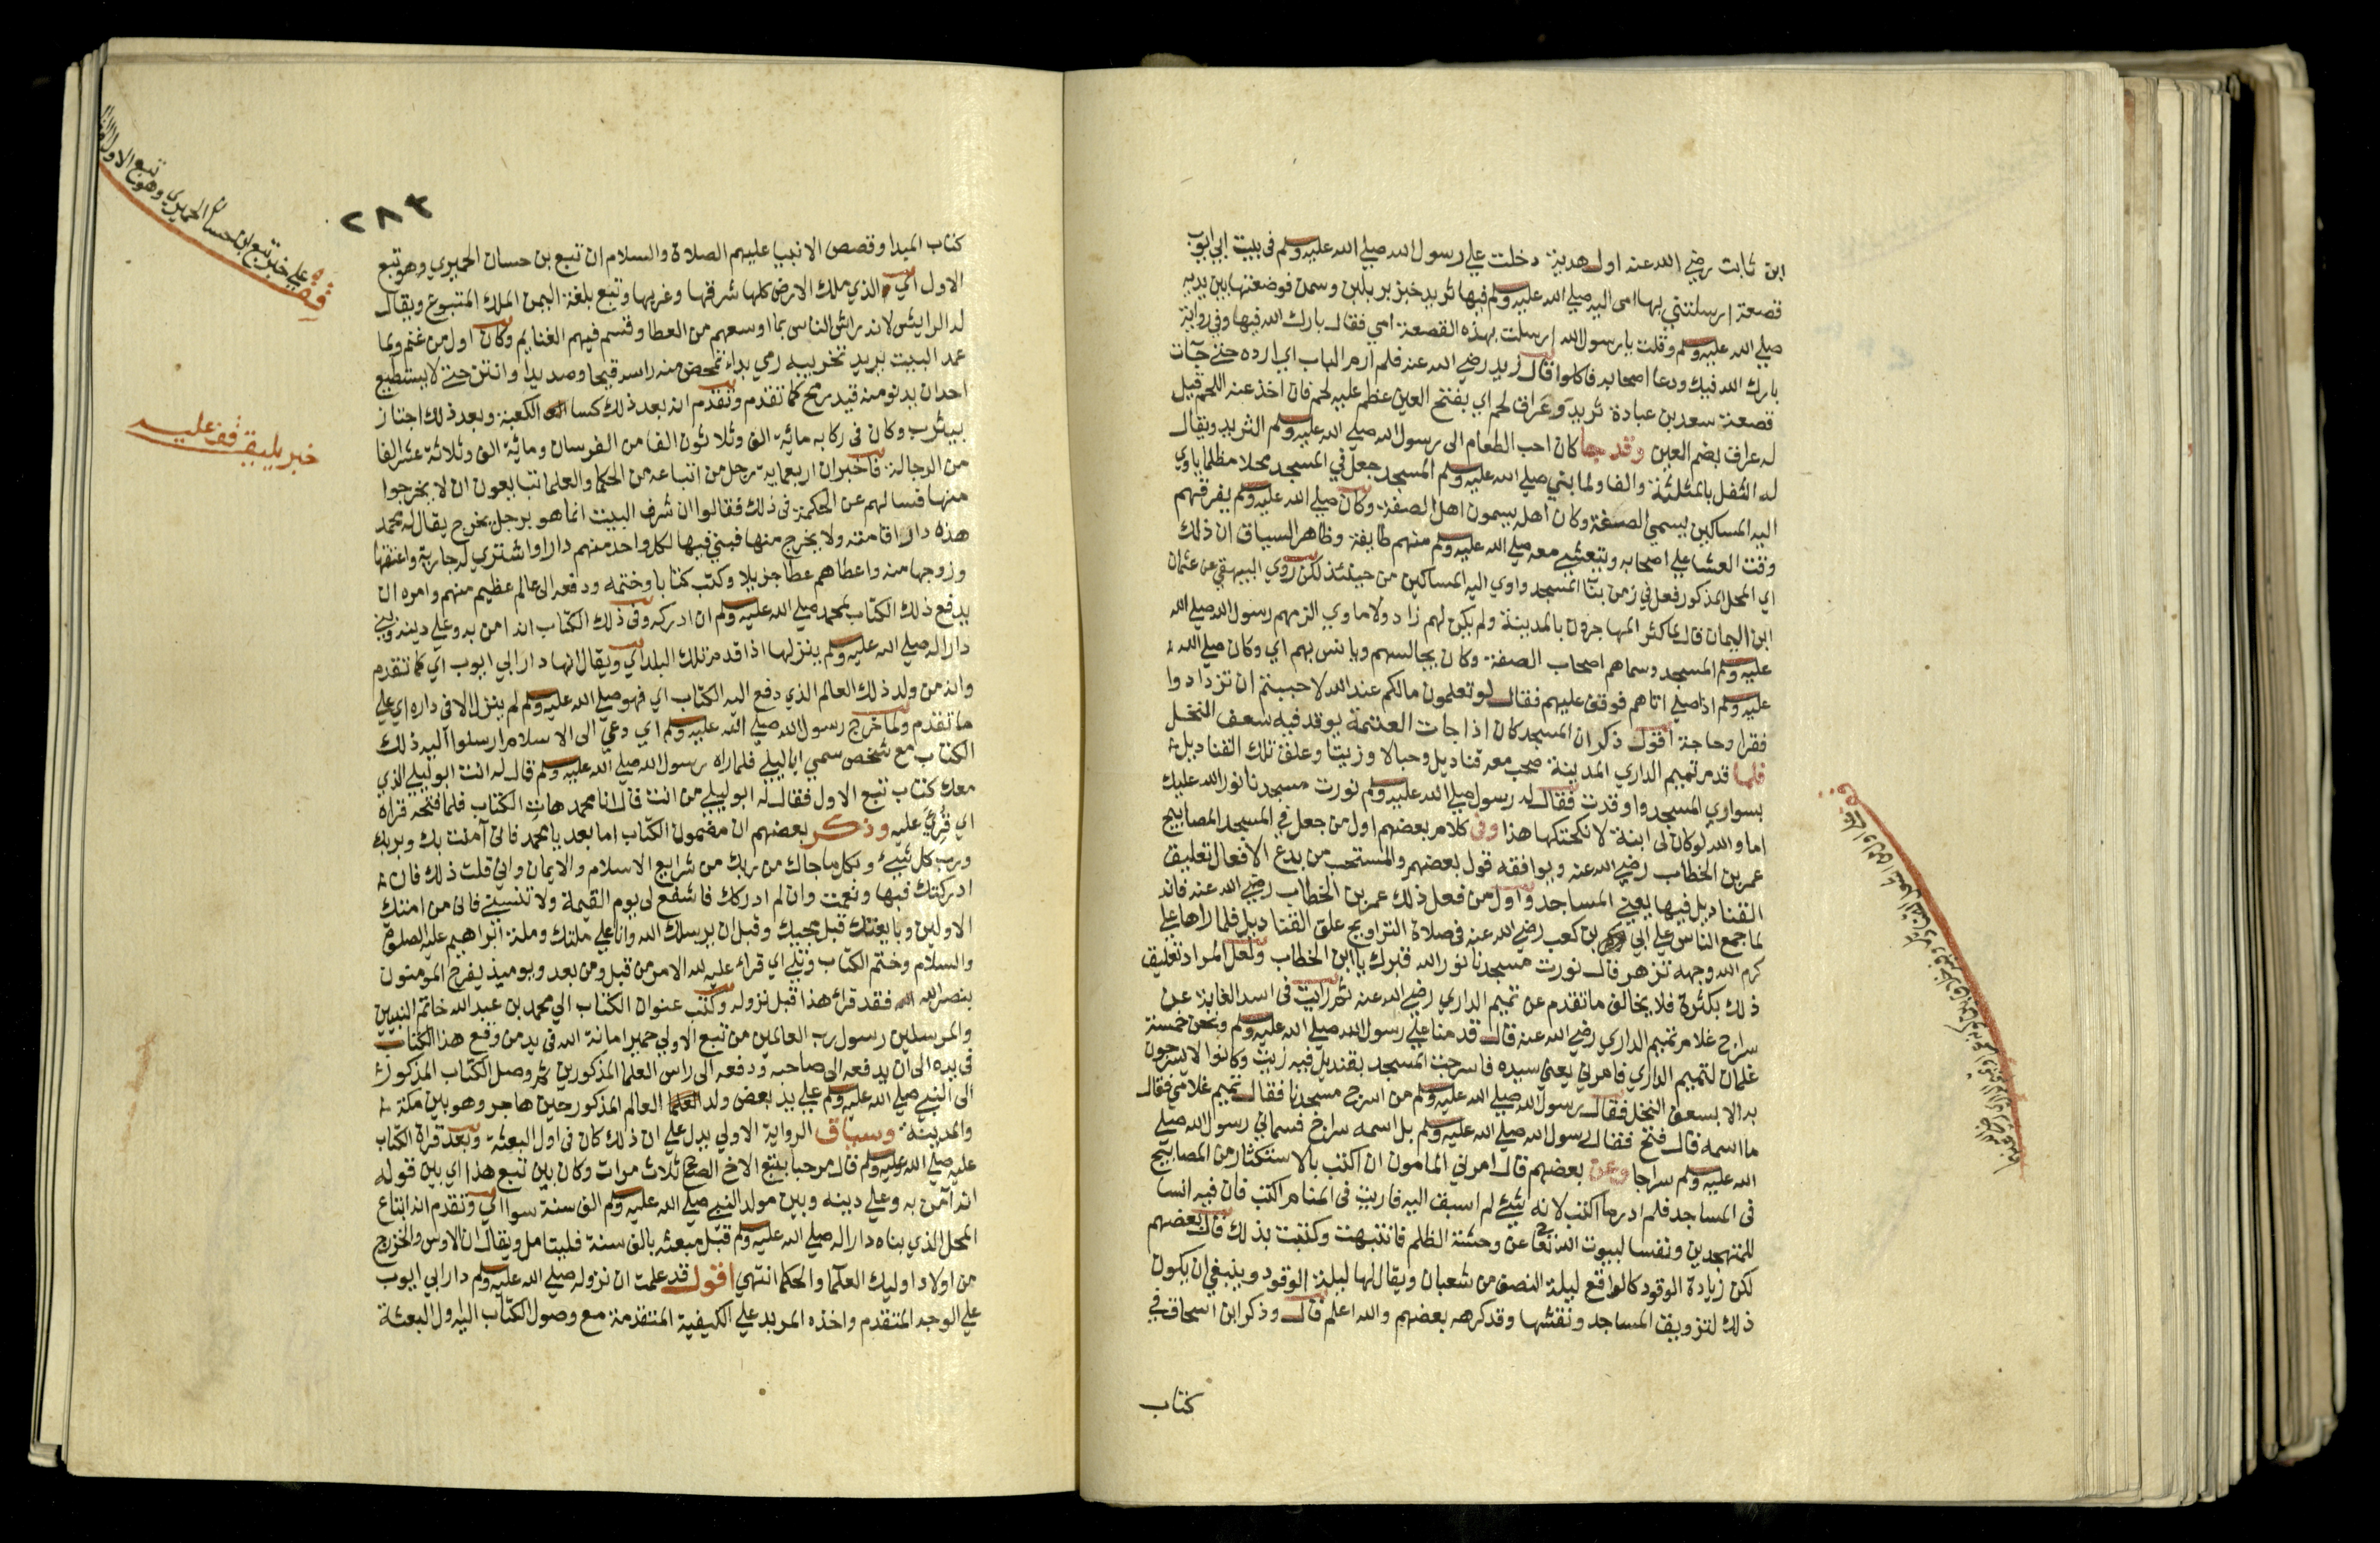 ابن ثابت رضي الله عنه اول هدية دخلت علي رسول الله صلي الله عليه وسلم في بيت ابي ايوب
قصعة ارسلتني بها امي اليه صلي الله عليه وسلم فيها ثريد خبز بر بلبن وسمن فوضعتها بين يديه
صلي الله عليه وسلم وقلت يا رسول الله ارسلت بهذه القصعة امي فقال بارك الله فيها وفي رواية
بارك الله فيك ودعا اصحابه فاكلوا قال زيد رضي الله عنه فلم ارم الباب اي ارده حتي جآت
قصعة سعد بن عبادة ثريد وعراق لحم اي بفتح العين عظم عليه لحم فان اخذ عنه اللحم قيل
له عراق بضم العين وقد جا كان احب الطعام الي رسول الله صلي الله عليه وسلم الثريد ويقال
له الثفل بالمثلثة والفا ولما بني صلي الله عليه وسلم المسجد جعل في المسجد محلا مظللا ياوي
اليه المساكين يسمي الصفة وكان اهله يسمون اهل الصفة وكان صلي الله عليه وسلم يفرقهم
وقت العشا علي اصحابه ويتعشي معه صلي الله عليه وسلم منهم طايفة وظاهر السياق ان ذلك
اي المحل المذكور فعل في زمن بنآ المسجد واوي اليه المساكين من حينئذ لكن روي البيهقي عن عثمان
ابن اليمان قال لما كثر المهاجرون بالمدينة ولم يكن لهم زاد ولا ماوي انزلهم رسول الله صلي الله
عليه وسلم المسجد وسماهم اصحاب الصفة وكان يجالسهم ويانس بهم اي وكان صلي الله
عليه وسلم اذا صلي اتاهم فوقف عليهم فقال لو تعلمون مالكم عند الله لاحببتم ان تزدادوا
فقرا وحاجة اقول ذكر ان المسجد كان اذا جات العتمة يوقد فيه سعف النخل
فلما قدم تميم الداري المدينة صحب معه قناديل وحبالا وزيتا وعلق تلك القناديل
بسواري المسجد واوقدت فقال له رسول الله صلي الله عليه وسلم نورت مسجدنا نور الله عليك
اما والله لو كان لي ابنة لانكحتكها هذا وفي كلام بعضهم اول من جعل في المسجد المصابيح
عمر بن الخطاب رضي الله عنه ويوافقه قول بعضهم والمستحب من بدع الافعال تعليق
القناديل فيها يعني المساجد واول من فعل ذلك عمر بن الخطاب رضي الله عنه فانه
لما جمع الناس علي ابي بن كعب رضي الله عنه في صلاة التراويح علق القناديل فلما راها علي
كرم الله وجهه تزهر قال نورت مسجدنا نور الله قبرك يا ابن الخطاب ولعل المراد تعليق
ذلك بكثرة فلا يخالف ما تقدم عن تميم الداري رضي الله عنه ثم رايت في اسد الغابة عن
سراج غلام تميم الداري رضي الله عنه قال قدمنا علي رسول الله صلي الله عليه وسلم ونحن خمسة
غلمان لتميم الداري فامرني يعني سيده فاسرجت المسجد بقنديل فيه زيت وكانوا لا يسرجون
به الا بسعف النخل فقال رسول الله صلي الله عليه وسلم من اسرج مسجدنا فقال تميم غلامي فقال
ما اسمه قال فتح فقال رسول الله صلي الله عليه وسلم بل اسمه سراج فسماني رسول الله صلي
الله عليه وسلم سراجا وعن بعضهم قال امرني المامون ان اكتب بالاستكثار من المصابيح
في المساجد فلم ادر ما اكتب لانه شئ لم اسبق اليه فاريت في المنام اكتب فان فيه انسا
للمتهجدين ونفيا لبيوت الله تعالي عن وحشة الظلم فانتبهت وكتبت بذلك قال بعضهم
لكن زيادة الوقود كالواقع ليلة النصف من شعبان ويقال لها ليلة الوقود وينبغي ان يكون
ذلك لتزويق المساجد ونقشها وقد كرهه بعضهم والله اعلم قال وذكر ابن اسحاق في
كتاب
٢٨٣
كتاب المبدا وقصص الانبيا عليهم الصلاة والسلام ان تبع بن حسان الحميري وهو تبع
الاول اي الذي ملك الارض كلها شرقها وغربها وتبع بلغة اليمن الملك المتبوع ويقال
له الرايش لانه راش الناس بما اوسعهم من العطا وقسم فيهم الغنايم وكان اول من غنم ولما
عمد البيت يريد تخريبه رمي بداء تمخض منه راسه قيحا وصديدا وانتن حتي لا يستطيع
احد ان يدنو منه قيد رمح كما تقدم وتقدم انه بعد ذلك كسا الكعبة وبعد ذلك اجتاز
بيثرب وكان في ركابه ماية الف وثلاثون الفا من الفرسان وماية الف وثلاثة عشر الفا
من الرجالة فاخبر ان اربعماية رجل من اتباعه من الحكما والعلما تبايعون ان لا يخرجوا
منها فسالهم عن الحكمة في ذلك فقالوا ان شرف البيت انما هو برجل يخرج يقال له محمد
هذه دار اقامته ولا يخرج منها فبني فيها لكل واحد منهم دارا واشتري له جارية واعتقها
وزوجها منه واعطاهم عطا جزيلا وكتب كتابا وختمه ودفعه الي عالم عظيم منهم وامره ان
يدفع ذلك الكتاب لمحمد صلي الله عليه وسلم ان ادركه وفي ذلك الكتاب انه امن به وعلي دينه وبني
دارا له صلي الله عليه وسلم ينزلها اذا قدم تلك البلد اي ويقال انها دار ابي ايوب اي كما تقدم
وانه من ولد ذلك العالم الذي دفع اليه الكتاب اي فهو صلي الله عليه وسلم لم ينزل الا في داره اي علي
ما تقدم ولما خرج رسول الله صلي الله عليه وسلم اي ودعي الي الاسلام ارسلوا اليه ذلك
الكتاب مع شخص سمي ابا ليلي فلما راه رسول الله صلي الله عليه وسلم قال له انت ابو ليلي الذي
معك كتاب تبع الاول فقال له ابو ليلي من انت قال انا محمد هات الكتاب فلما فتحه قراه
اي قرئ عليه وذكر بعضهم ان مضمون الكتاب اما بعد يا محمد فاني آمنت بك وبربك
ورب كل شئ وبكل ما جاك من ربك من شرايع الاسلام والايمان واني قلت ذلك فان
ادركتك فبها ونعمت وان لم ادركك فاشفع لي يوم القيمة ولا تنسيني فاني من امتك
الاولين وبايعتك قبل مجيك وقبل ان يرسلك الله وانا علي ملتك وملة ابراهيم عليه الصلوة
والسلام وختم الكتاب وتلي اي قراء عليه لله الامر من قبل ومن بعد ويوميذ يفرح المومنون
بنصر الله فقد قراء هذا قبل نزوله وكتب عنوان الكتاب الي محمد بن عبد الله خاتم النبيين
والمرسلين رسول رب العالمين من تبع الاول حمير امانة الله في يد من وقع هذا الكتاب
في يده الي ان يدفعه الي صاحبه ودفعه الي راس العلما المذكورين ثم وصل الكتاب المذكور
الي النبي صلي الله عليه وسلم علي يد بعض ولد العالم المذكور حين هاجر وهو بين مكة
والمدينة وسياق الرواية الاولي يدل علي ان ذلك كان في اول البعثة وبعد قراة الكتاب
عليه صلي الله عليه وسلم قال مرحبا بتبع الاخ الصالح ثلاث مرات وكان بين تبع هذا اي بين قوله
انه آمن به وعلي دينه وبين مولد النبي صلي الله عليه وسلم الف سنة سوا اي وتقدم انه ابتاع
المحل الذي بناه دارا له صلي الله عليه وسلم قبل مبعثه بالف سنة فليتامل ويقال ان الاوس والخزرج
من اولاد اوليك العلما والحكما انتهي اقول قد علمت ان نزوله صلي الله عليه وسلم دار ابي ايوب
علي الوجه المتقدم واخذه المربد علي الكيفية المتقدمة مع وصول الكتاب اليه اول البعثة
قف علي خبر تبع بن حسان الحميري وهو تبع الاول
خبر يليق قف عليه